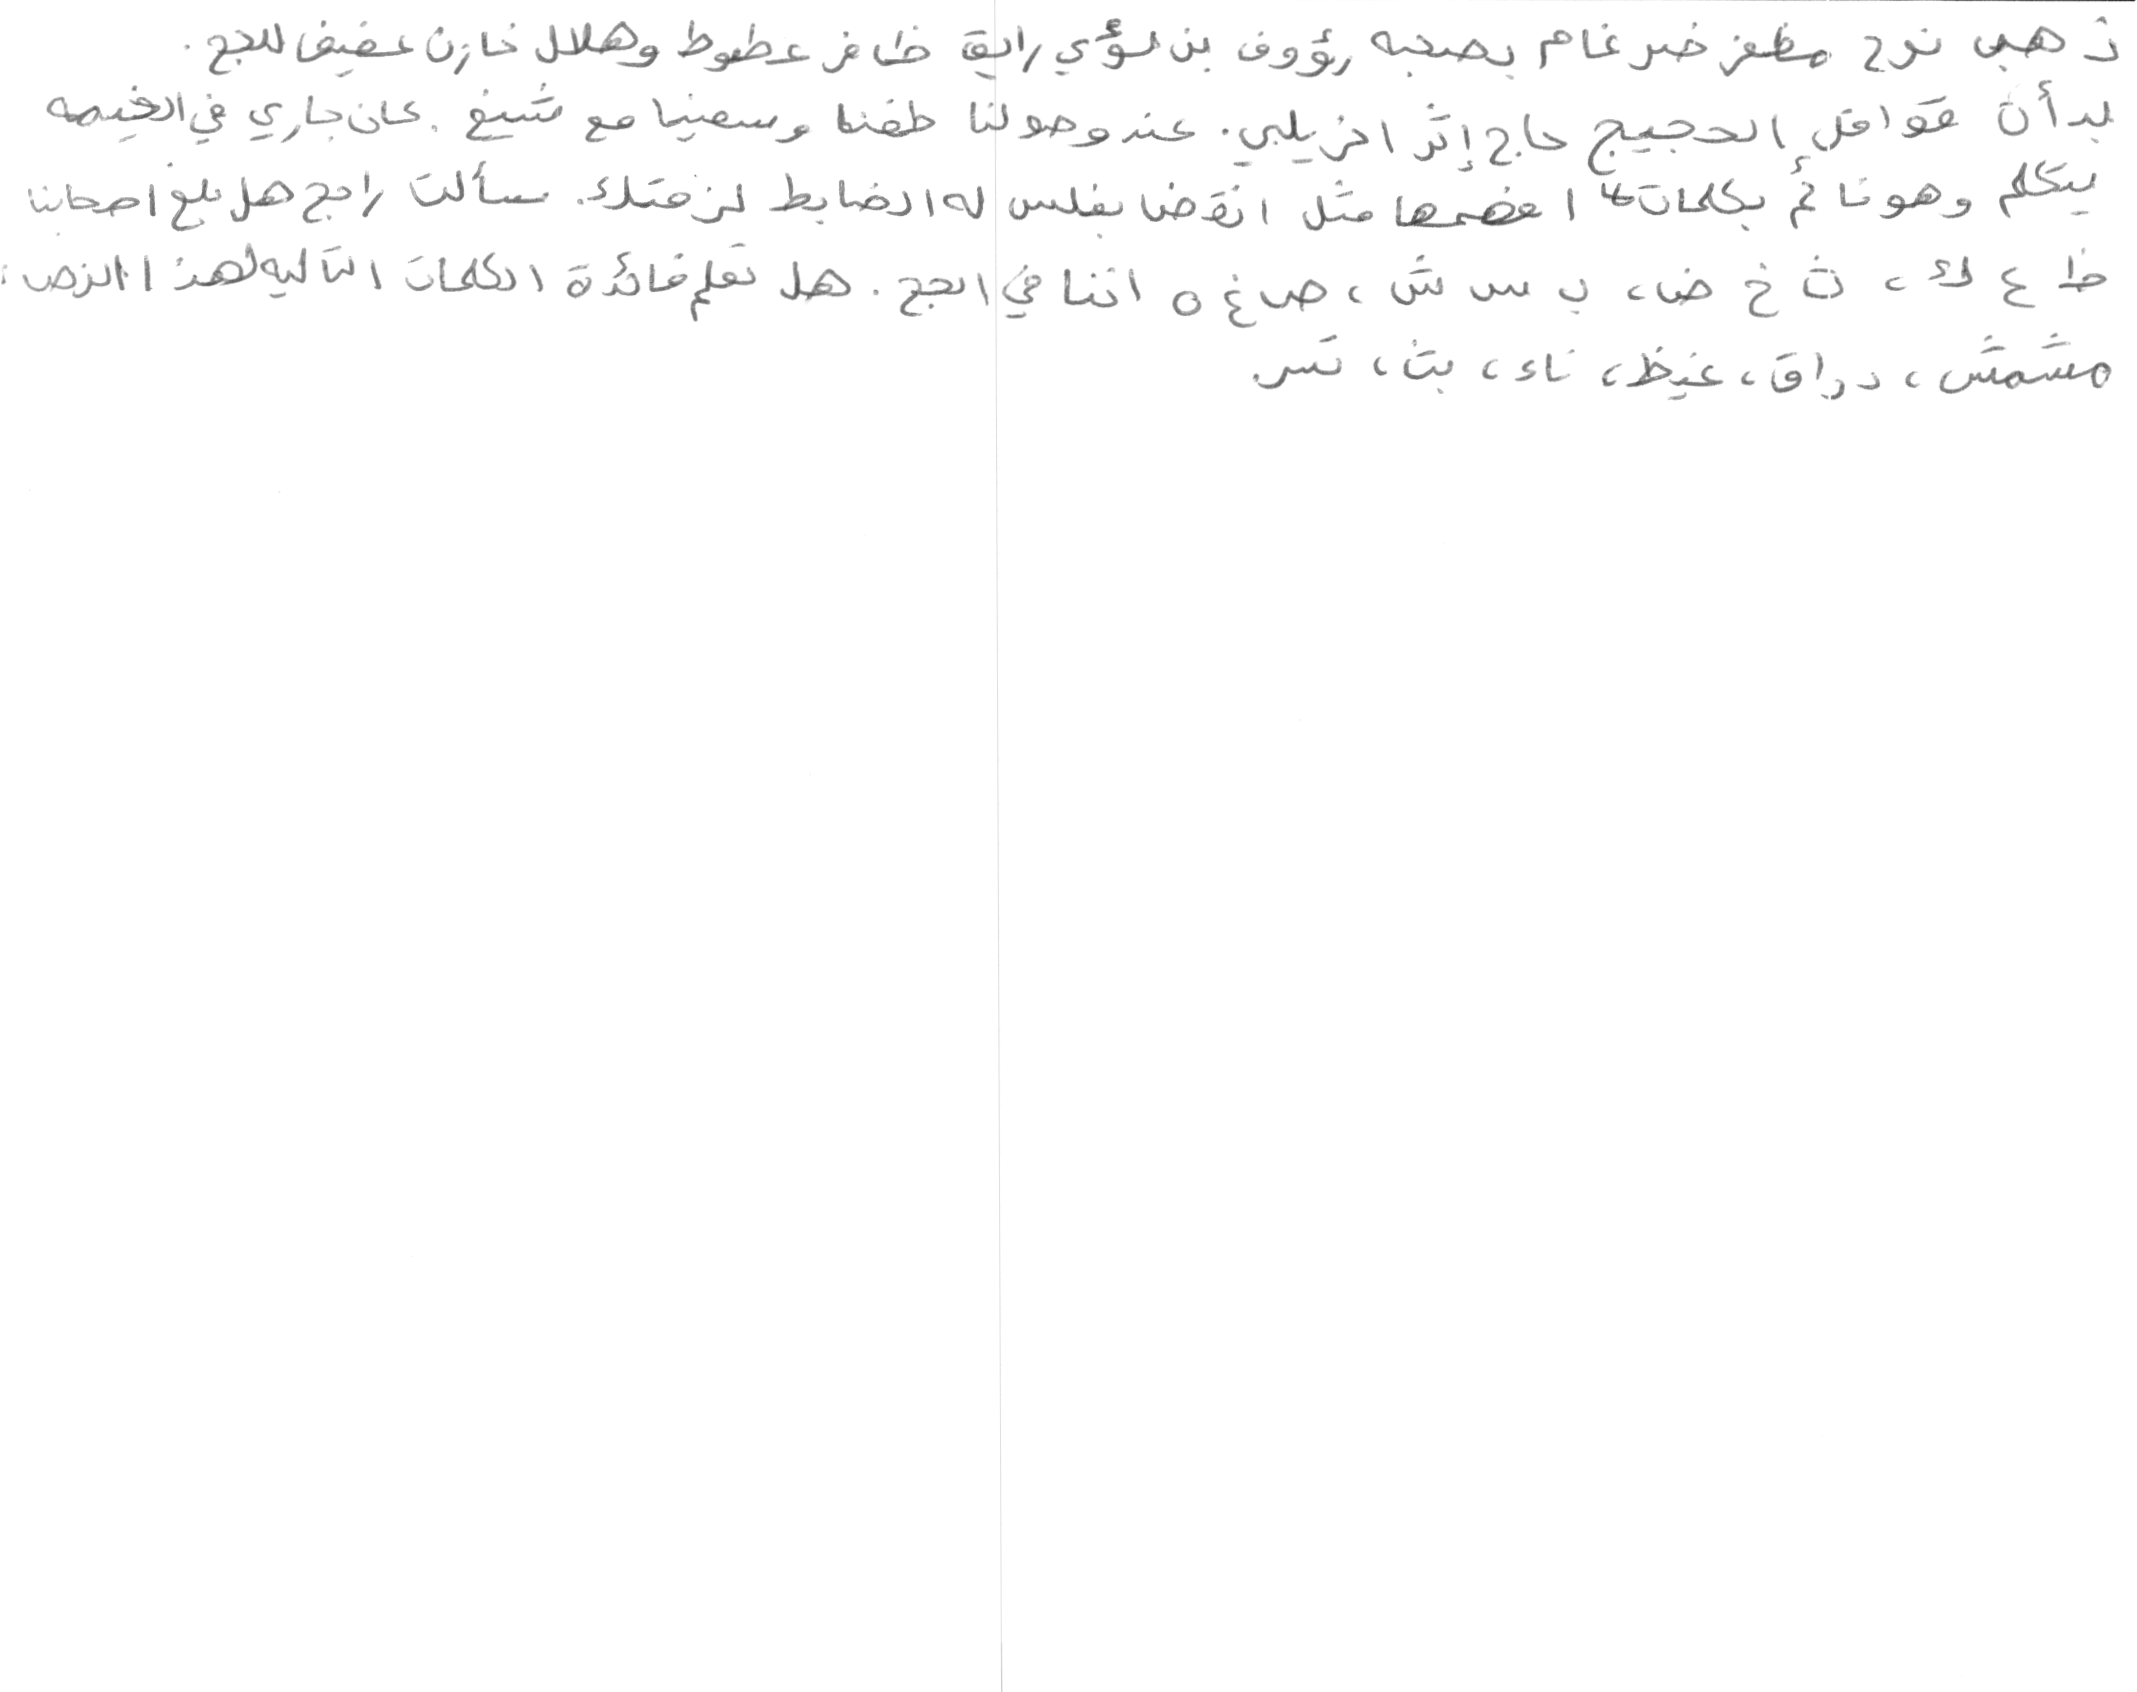 ذهب نوح مظفر ضرغام بصحبه رؤوف بن لؤي رايق ظافر عطوط وهلال خازن عفيف للحج.
بدأت قوافل الحجيج حاج إثر اخر يلبي. عند وصولنا طفنا وسعينا مع شيخ. كان جاري في الخيمه
يتكلم وهو نائم بكلمات لا افهمها مثل انقض بفلس له الضابط لزقتك. سألت راجح هل بلغ اصحابنا
ظ ع ك، ث خ ض، ب س ش، ص غ ه اننا في الحج. هل تعلم فائدة الكلمات التاليه لهذا النص:
مشمش، دراق، غيظ، ناء، بث، تس.